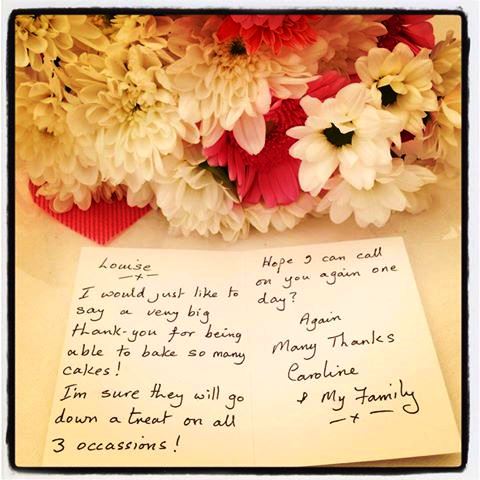 Louise
I would just like to
say a very big
thank-you for being
able to bake so many
cakes!
I'm sure they will go
down a treat on all
3 occassions!
Hope I can call
on you again one
day?
Again
Many Thanks
Caroline
& My Family